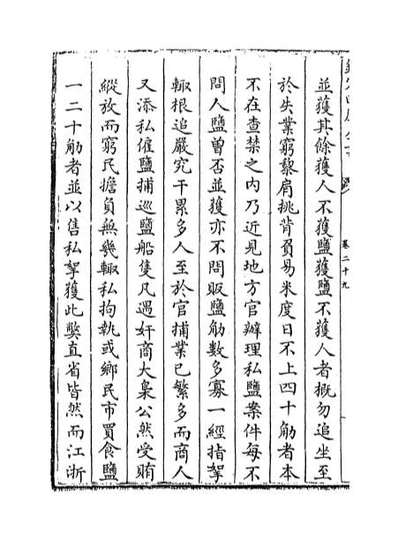 卷二十九
並獲其餘獲人不獲鹽獲鹽不獲人者概勿追坐至
於失業窮黎肩挑背負易米度日不上四十觔者本
不在查禁之內乃近見地方官辦理私鹽案件每不
問人鹽曾否並獲亦不問販鹽觔數多寡一經指拏
輙根追嚴究干累多人至於官捕業已繁多而商人
又添私催鹽捕巡鹽船隻凡遇奸商大梟公然受賄
縱放而窮民擔負無幾輙私拘執或鄉民市買食鹽
一二十觔者並以售私拏獲此弊直省皆然而江浙